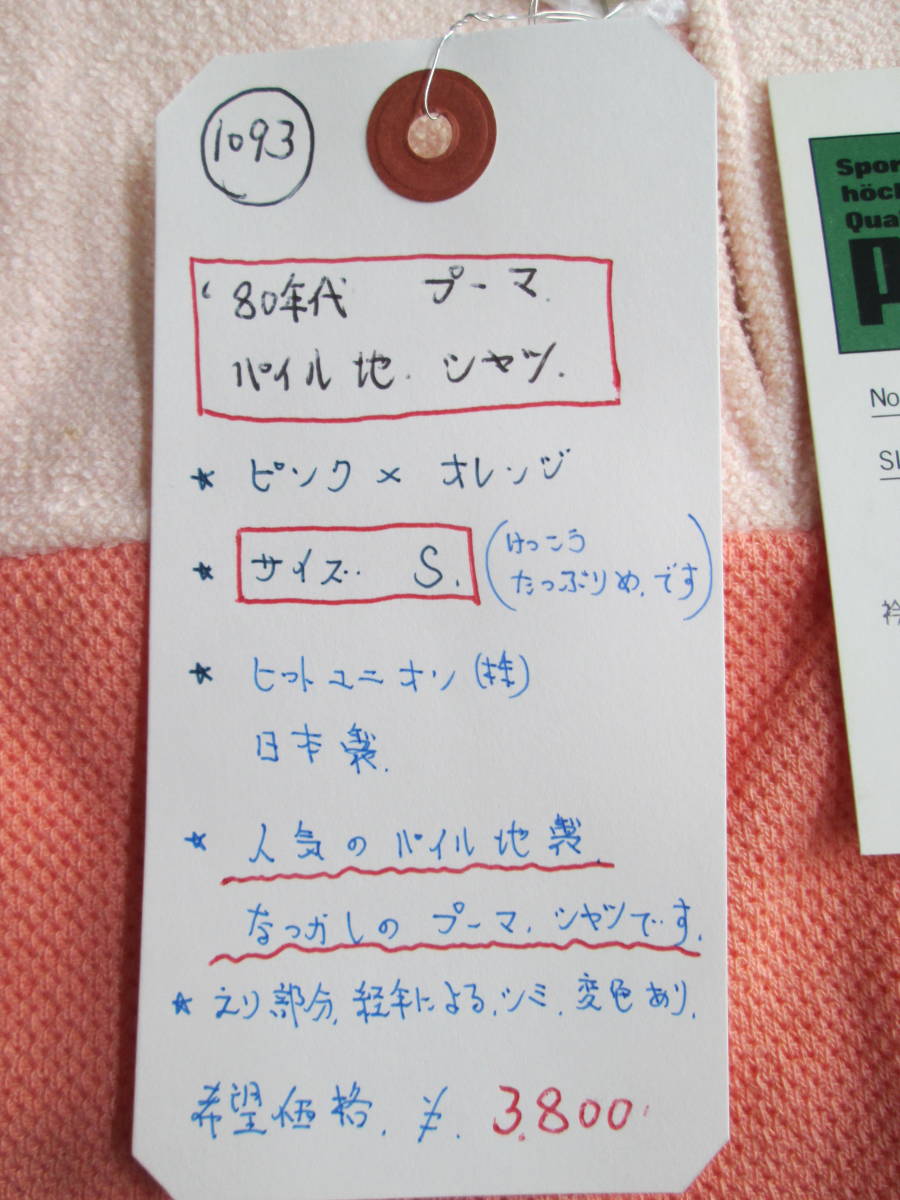 1093
'80年代 プーマ
パイル地 シャツ.
★ ピンク × オレンジ
★ サイズ S. (けっこう
たっぷりめ.です)
★ ヒットユニオン(株)
日本製.
★ 人気のパイル地製
なつかしの プーマ.シャツです.
★ えり部分.経年による.シミ.変色あり.
希望価格.¥.3.800
Spor
höch
Qua
No
衿